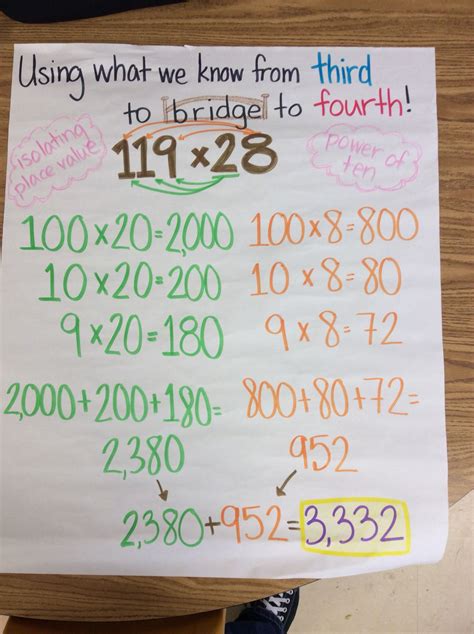 Using what we know from third
to bridge to fourth!
isolating
place value
119 × 28
power of
ten
100×20=2,000
10×20=200
9×20=180
100×8=800
10×8=80
9×8=72
2,000+200+180=
2,380
800+80+72=
952
2,380+952=3,332